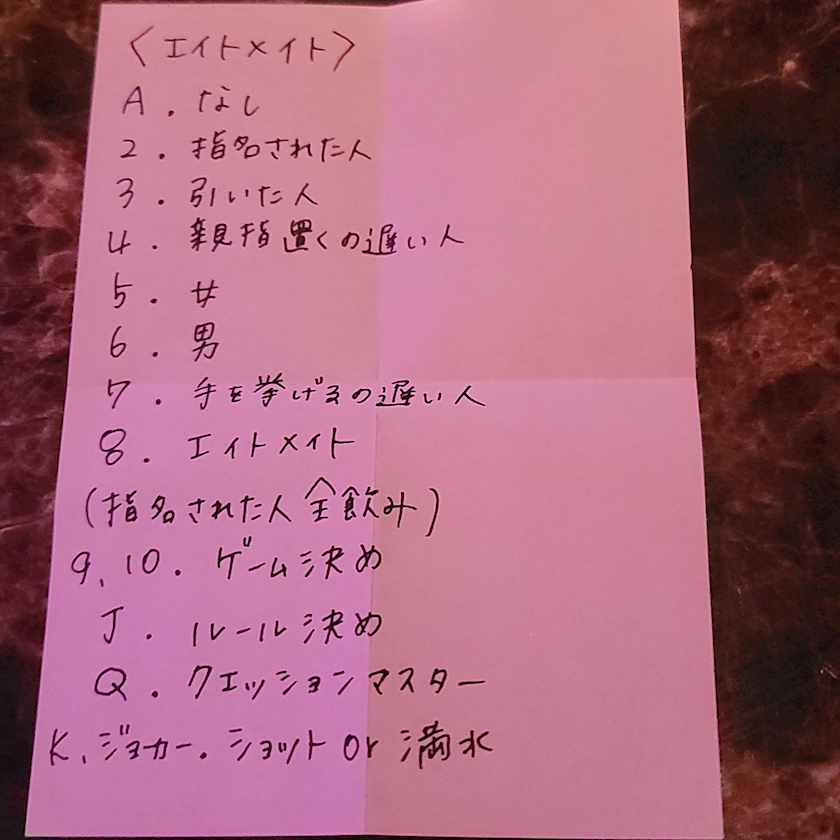 〈エイトメイト〉
A. なし
2. 指名された人
3. 引いた人
4. 親指置くの遅い人
5. 女
6. 男
7. 手を挙げるの遅い人
8. エイトメイト
(指名された人全飲み)
9、10. ゲーム決め
J. ルール決め
Q. クエッションマスター
K、ジョーカー. ショット or 満水